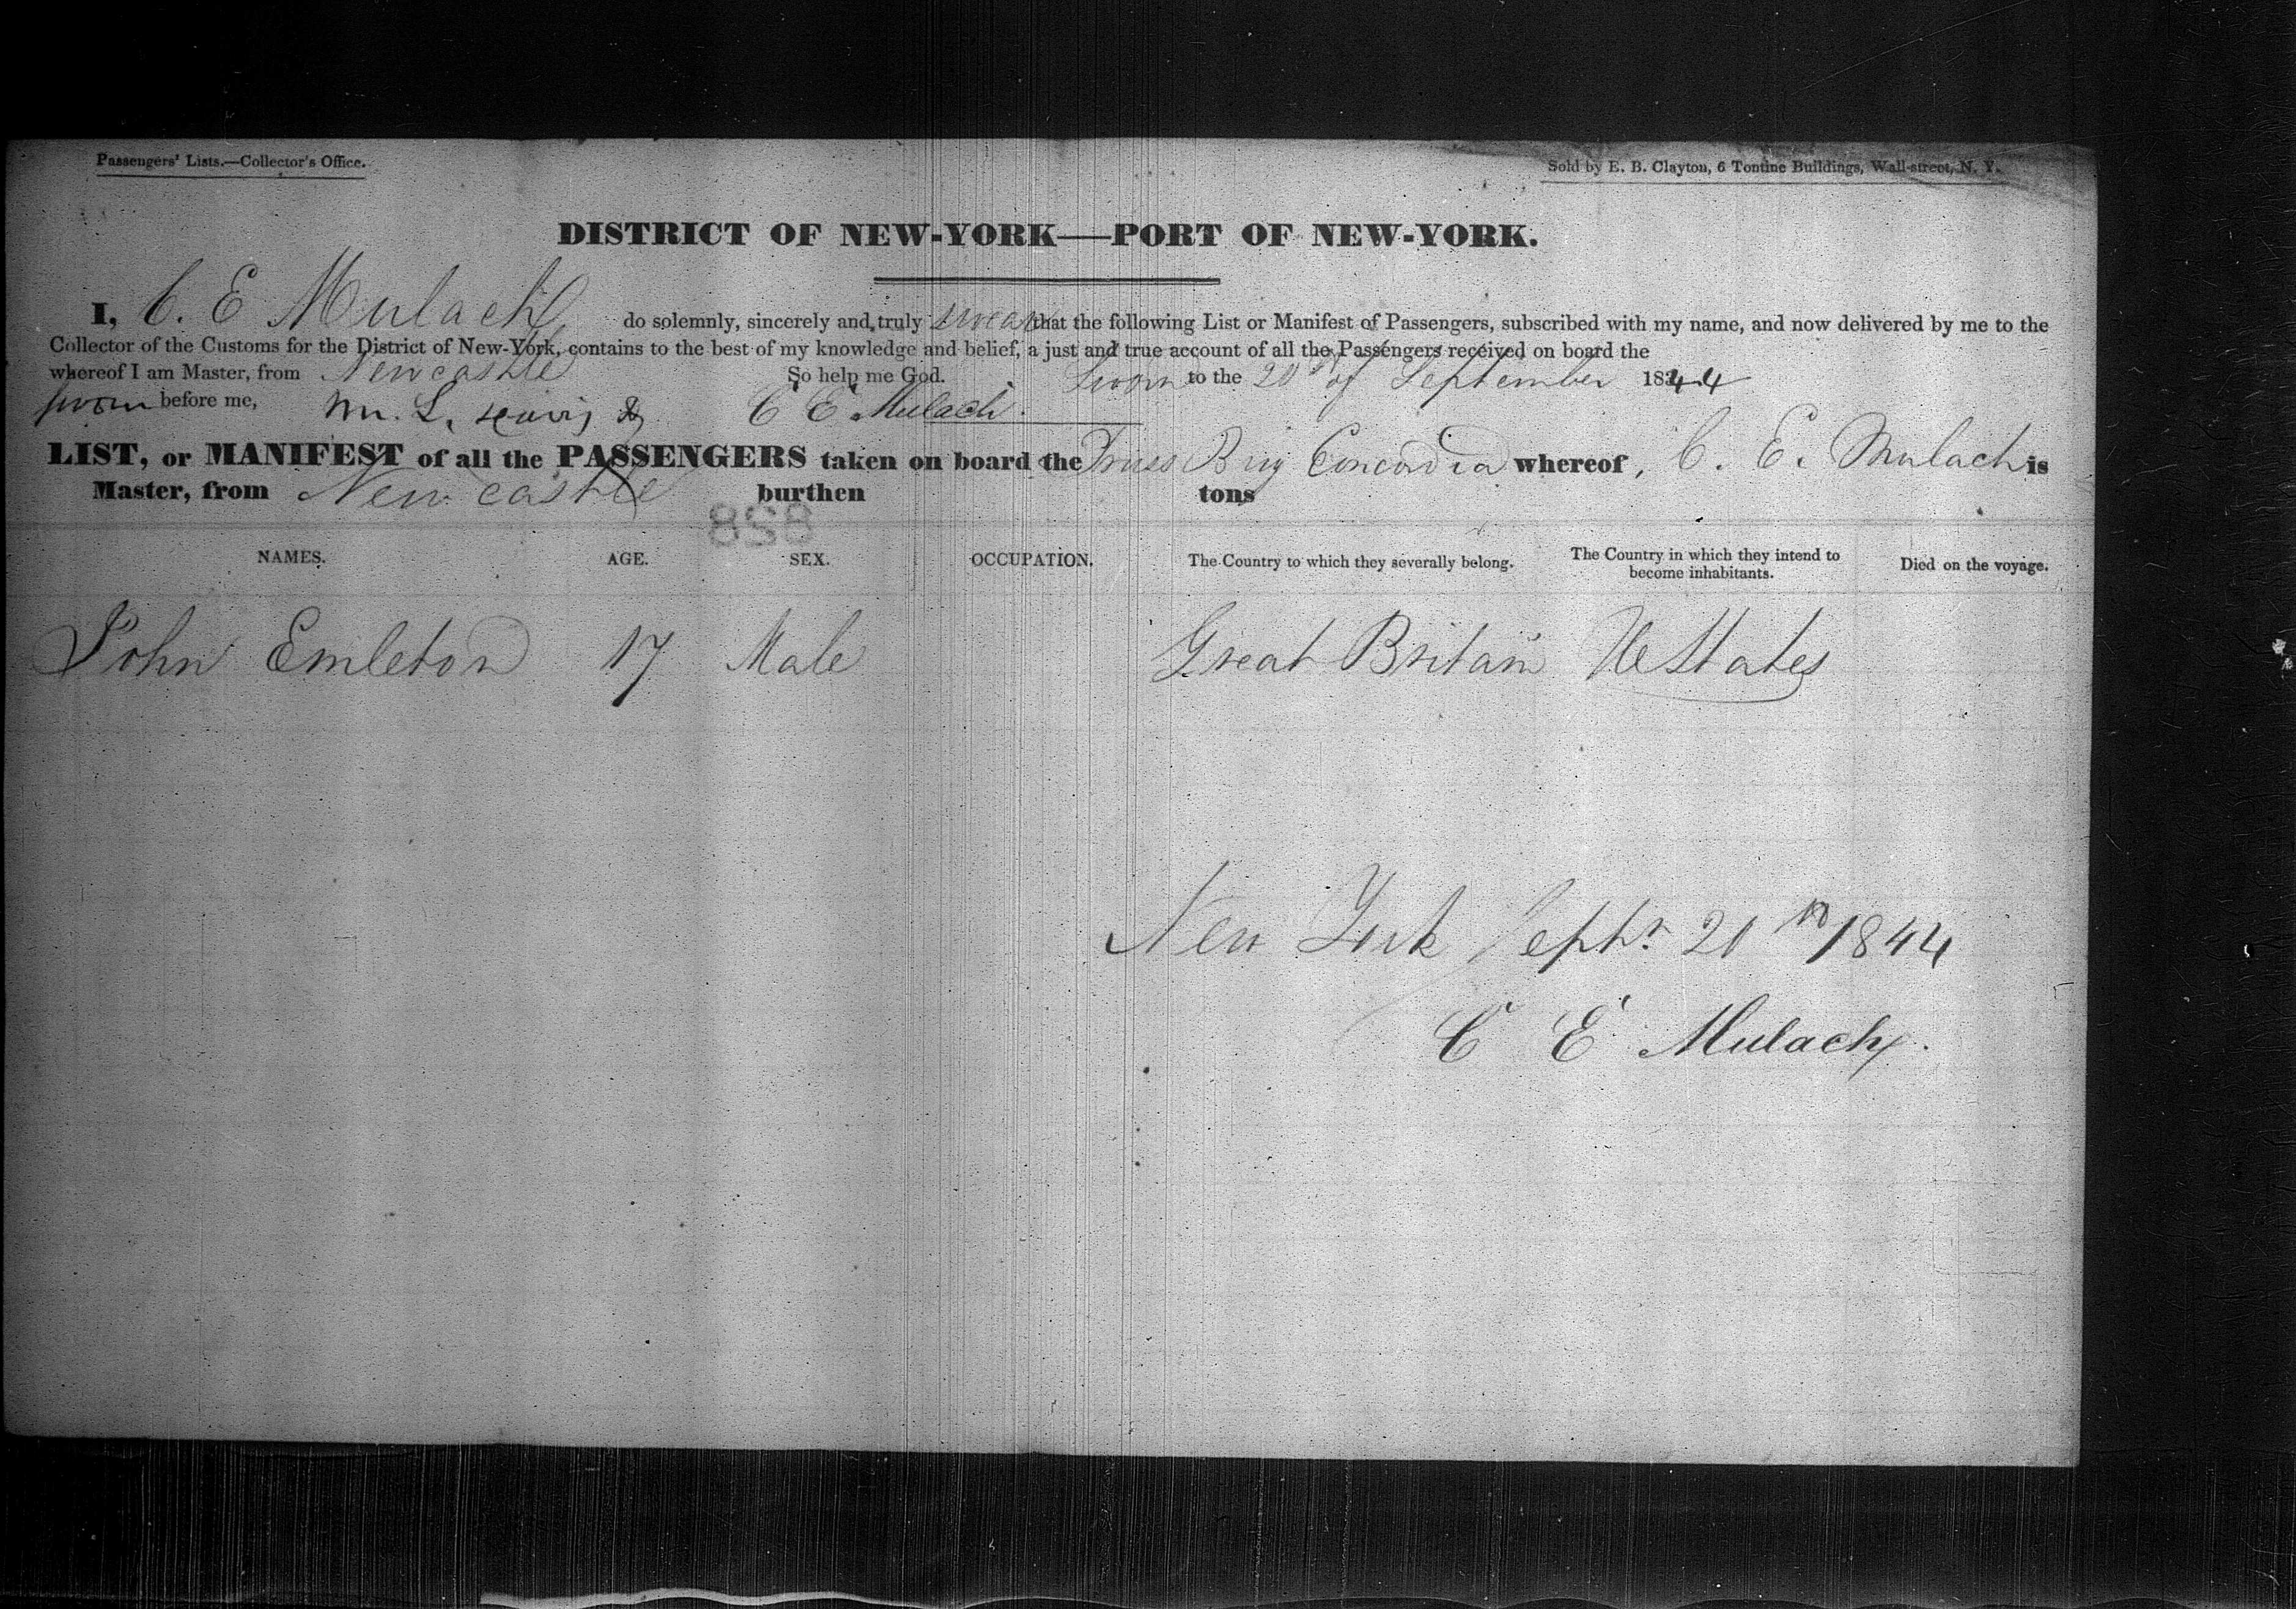 Passengers' Lists.—Collector's Office.
Sold by E. B. Clayton, 6 Tontine Buildings, Wall-street, N. Y.
DISTRICT OF NEW-YORK—PORT OF NEW-YORK.
I, C. E Mulach do solemnly, sincerely and truly swear that the following List or Manifest of Passengers, subscribed with my name, and now delivered by me to the
Collector of the Customs for the District of New-York, contains to the best of my knowledge and belief, a just and true account of all the Passengers received on board the
whereof I am Master, from Newcastle So help me God. Sworn to the 20th of September 1844
sworn before me, C E Mulach.
LIST, or MANIFEST of all the PASSENGERS taken on board the Pruss Brig Concordia whereof, C. E. Mulach is
Master, from New castle burthen tons
858
NAMES. AGE. SEX. OCCUPATION. The Country to which they severally belong. The Country in which they intend to become inhabitants. Died on the voyage.
John Emleton 17 Male Great Britain U States
New York Septr. 20th 1844
C E Mulach.